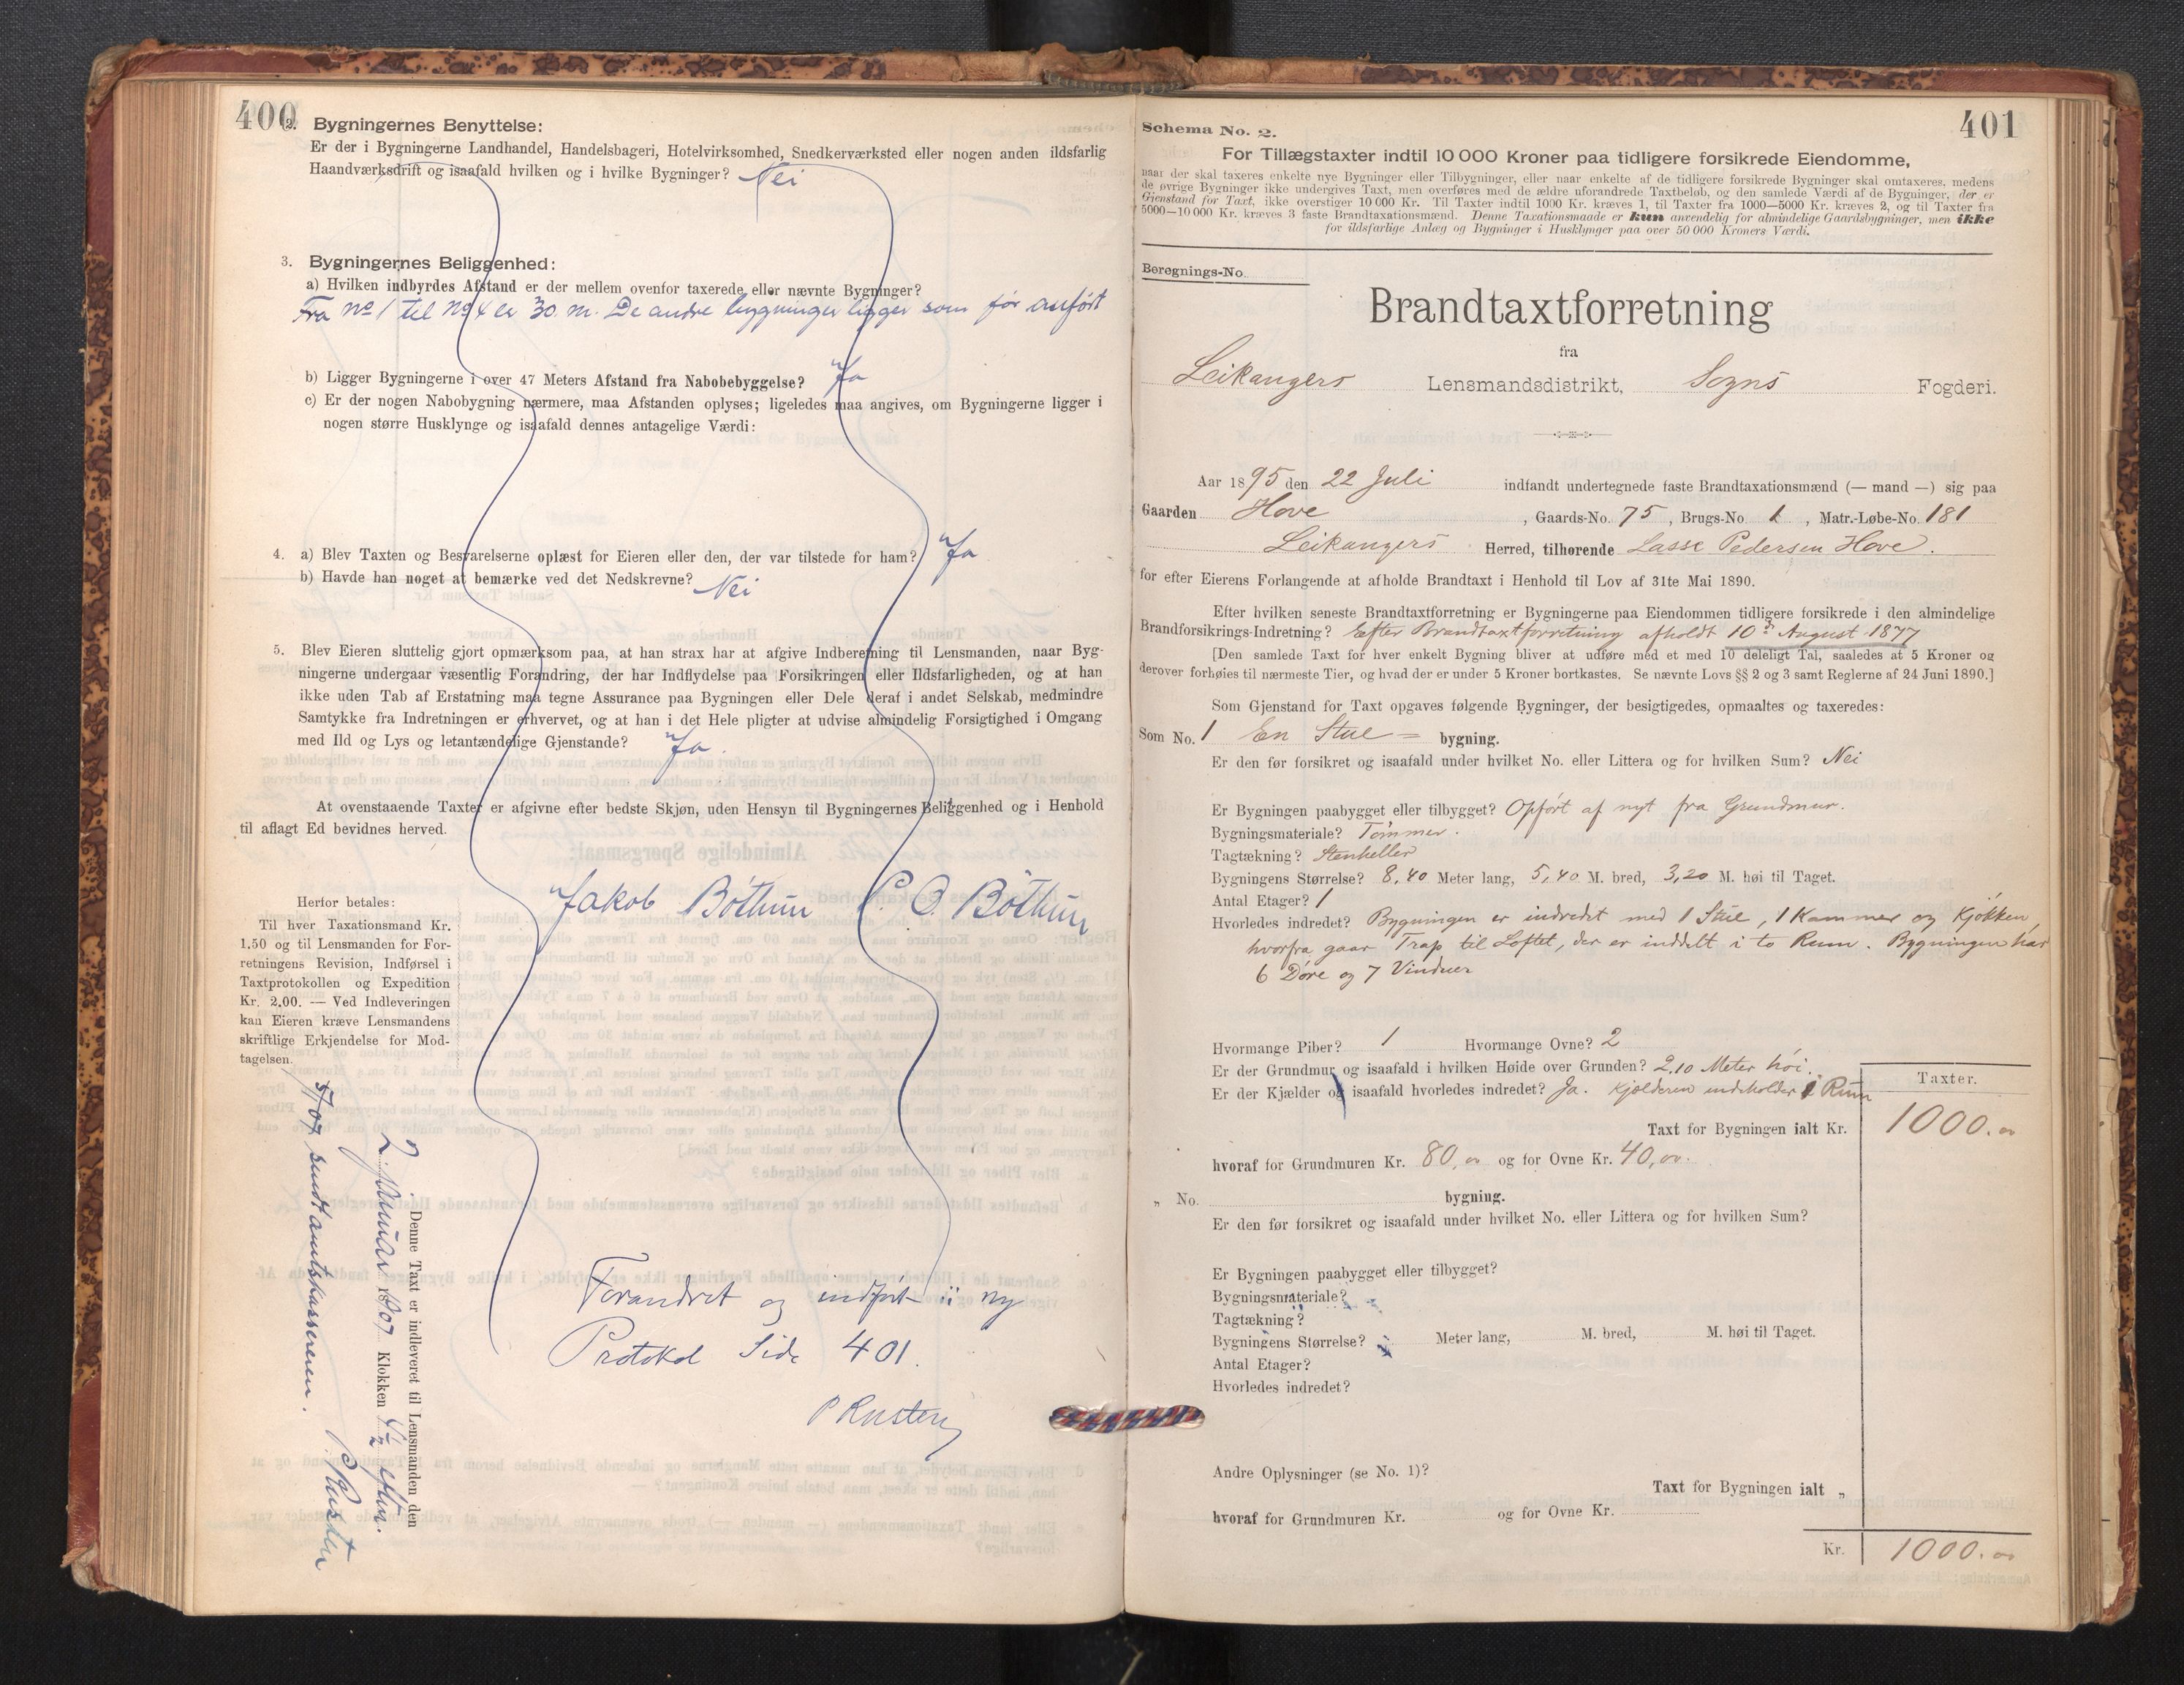 400
2. Bygningernes Benyttelse:
Er der i Bygningerne Landhandel, Handelsbageri, Hotelvirksomhed, Snedkerværksted eller nogen anden ildsfarlig
Haandværksdrift og isaafald hvilken og i hvilke Bygninger? Nei
3. Bygningernes Beliggenhed:
a) Hvilken indbyrdes Afstand er der mellem ovenfor taxerede eller nævnte Bygninger?
Fra No 1 til No 4 er 30 m. De andre bygninger ligger som før anført
b) Ligger Bygningerne i over 47 Meters Afstand fra Nabobebyggelse? Ja
c) Er der nogen Nabobygning nærmere, maa Afstanden oplyses; ligeledes maa angives, om Bygningerne ligger i
nogen større Husklynge og isaafald dennes antagelige Værdi:
4. a) Blev Taxten og Besvarelserne oplæst for Eieren eller den, der var tilstede for ham? Ja
b) Havde han noget at bemærke ved det Nedskrevne? Nei
5. Blev Eieren sluttelig gjort opmærksom paa, at han strax har at afgive Indberetning til Lensmanden, naar Byg-
ningerne undergaar væsentlig Forandring, der har Indflydelse paa Forsikringen eller Ildsfarligheden, og at han
ikke uden Tab af Erstatning maa tegne Assurance paa Bygningen eller Dele deraf i andet Selskab, medmindre
Samtykke fra Indretningen er erhvervet, og at han i det Hele pligter at udvise almindelig Forsigtighed i Omgang
med Ild og Lys og letantændelige Gjenstande? Ja.
At ovenstaaende Taxter er afgivne efter bedste Skjøn, uden Hensyn til Bygningernes Beliggenhed og i Henhold
til aflagt Ed bevidnes herved.
Jakob Bóthun P. O. Bóthun
Herfor betales:
Til hver Taxationsmand Kr.
1,50 og til Lensmanden for For-
retningens Revision, Indførsel i
Taxtprotokollen og Expedition
Kr. 2,00. — Ved Indleveringen
kan Eieren kræve Lensmandens
skriftlige Erkjendelse for Mod-
tagelsen.
Denne Taxt er indleveret til Lensmanden den
2 januar 1907 Klokken 4½ eftm.
5/1 07 sendt amtskassereren.
P Rusten
Forandret og indført i ny
Protokol Side 401.
P Rusten
401
Schema No. 2.
For Tillægstaxter indtil 10 000 Kroner paa tidligere forsikrede Eiendomme,
naar der skal taxeres enkelte nye Bygninger eller Tilbygninger, eller naar enkelte af de tidligere forsikrede Bygninger skal omtaxeres, medens
de øvrige Bygninger ikke undergives Taxt, men overføres med de ældre uforandrede Taxtbeløb, og den samlede Værdi af de Bygninger, der er
Gjenstand for Taxt, ikke overstiger 10 000 Kr. Til Taxter indtil 1000 Kr. kræves 1, til Taxter fra 1000—5000 Kr. kræves 2, og til Taxter fra
5000—10 000 Kr. kræves 3 faste Brandtaxationsmænd. Denne Taxationsmaade er kun anvendelig for almindelige Gaardsbygninger, men ikke
for ildsfarlige Anlæg og Bygninger i Husklynger paa over 50 000 Kroners Værdi.
Beregnings-No.
Brandtaxtforretning
fra
Leikangers Lensmandsdistrikt, Sogns Fogderi.
Aar 1895 den 22 Juli indfandt undertegnede faste Brandtaxationsmænd (— mand —) sig paa
Gaarden Hove, Gaards-No. 75, Brugs-No. 1, Matr.-Løbe-No. 181
Leikangers Herred, tilhørende Lasse Pedersen Hove.
for efter Eierens Forlangende at afholde Brandtaxt i Henhold til Lov af 31te Mai 1890.
Efter hvilken seneste Brandtaxtforretning er Bygningerne paa Eiendommen tidligere forsikrede i den almindelige
Brandforsikrings-Indretning? Efter Brandtaxtforretning afholdt 10de August 1877
[Den samlede Taxt for hver enkelt Bygning bliver at udføre med et med 10 deleligt Tal, saaledes at 5 Kroner og
derover forhøies til nærmeste Tier, og hvad der er under 5 Kroner bortkastes. Se nævnte Lovs §§ 2 og 3 samt Reglerne af 24 Juni 1890.]
Som Gjenstand for Taxt opgaves følgende Bygninger, der besigtigedes, opmaaltes og taxeredes:
Som No. 1 En Stue= bygning.
Er den før forsikret og isaafald under hvilket No. eller Littera og for hvilken Sum? Nei
Er Bygningen paabygget eller tilbygget? Opført af nyt fra Grundmur.
Bygningsmateriale? Tømmer.
Tagtækning? Stenheller
Bygningens Størrelse? 8,40 Meter lang, 5,40 M. bred, 3,20 M. høi til Taget.
Antal Etager? 1
Hvorledes indredet? Bygningen er indredet med 1 Stue, 1 Kammer og Kjøkken,
hvorfra gaar Trap til Loftet, der er inddelt i to Rum. Bygningen har
6 Døre og 7 Vinduer
Hvormange Piber? 1 Hvormange Ovne? 2
Er der Grundmur og isaafald i hvilken Høide over Grunden? 2,10 Meter høi.
Er der Kjælder og isaafald hvorledes indredet? Ja. Kjelderen indeholder 1 Rum
Taxter.
Taxt for Bygningen ialt Kr. 1000.00
hvoraf for Grundmuren Kr. 80,00 og for Ovne Kr. 40,00.
„ No. bygning.
Er den før forsikret og isaafald under hvilket No. eller Littera og for hvilken Sum?
Er Bygningen paabygget eller tilbygget?
Bygningsmateriale?
Tagtækning?
Bygningens Størrelse? Meter lang, M. bred, M. høi til Taget.
Antal Etager?
Hvorledes indredet?
Andre Oplysninger (se No. 1)?
Taxt for Bygningen ialt „
hvoraf for Grundmuren Kr. og for Ovne Kr.
Kr. 1000.00